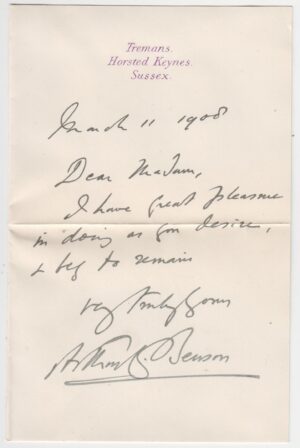 Tremans.
Horsted Keynes.
Sussex.
March 11 1908
Dear Madam,
I have great pleasure
in doing as you desire,
& beg to remain
very truly yours
Arthur C. Benson